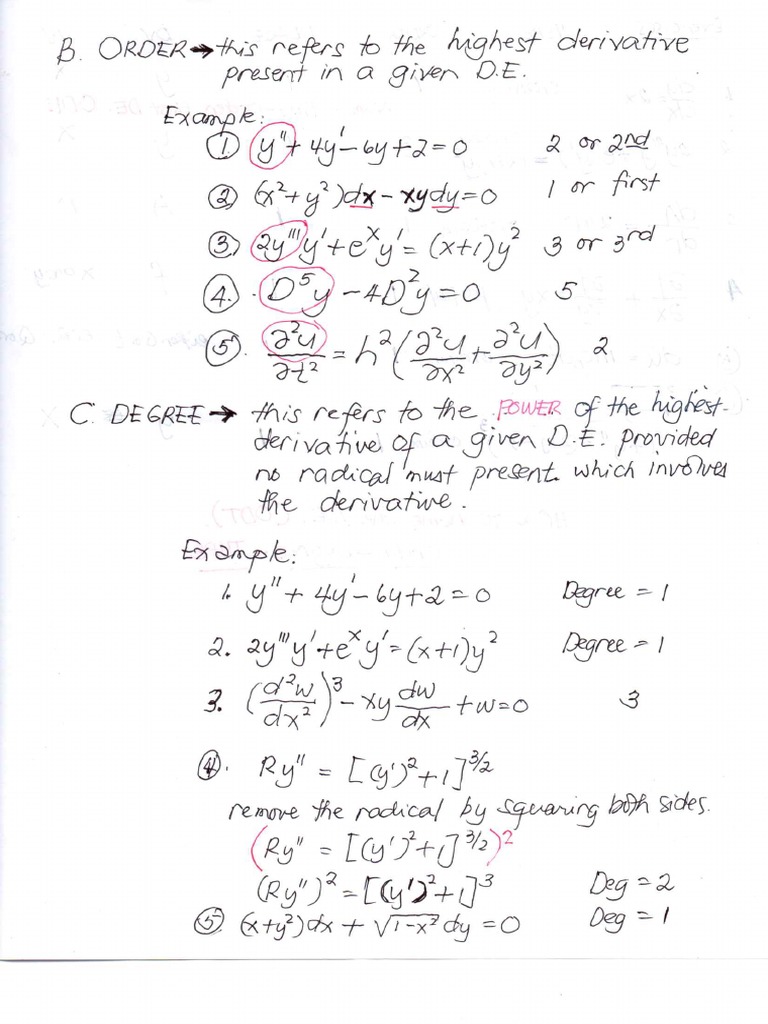 B. ORDER → this refers to the highest derivative
present in a given D.E.
Example:
① y'' + 4y' - 6y + 2 = 0 2 or 2nd
② (x² + y²)dx - xydy = 0 1 or first
③ 2y'''y' + eˣy' = (x+1)y² 3 or 3rd
④. D⁵y - 4D²y = 0 5
⑤. ∂²u/∂t² = h²(∂²u/∂x² + ∂²u/∂y²) 2
C. DEGREE → this refers to the POWER of the highest
derivative of a given D.E. provided
no radical must present which involves
the derivative.
Example:
1. y'' + 4y' - 6y + 2 = 0 Degree = 1
2. 2y'''y' + eˣy' = (x+1)y² Degree = 1
3. (d²w/dx²)³ - xy dw/dx + w = 0 3
④. Ry'' = [(y')² + 1]^3/2
remove the radical by squaring both sides.
(Ry'' = [(y')² + 1]^3/2)²
(Ry'')² = [(y')² + 1]³ Deg = 2
⑤. (x+y²)dx + √1-x² dy = 0 Deg = 1